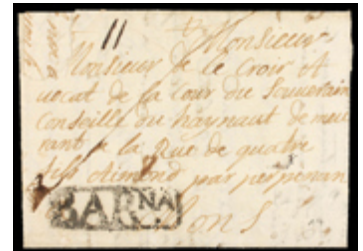 11
Monsieur
Monsieur de le Croix
vocat de la Cour du Souverain
Conseille du haynaut de meu
rant a la Rue de quatre
fils aimond par perpenan
BARNA
Mons